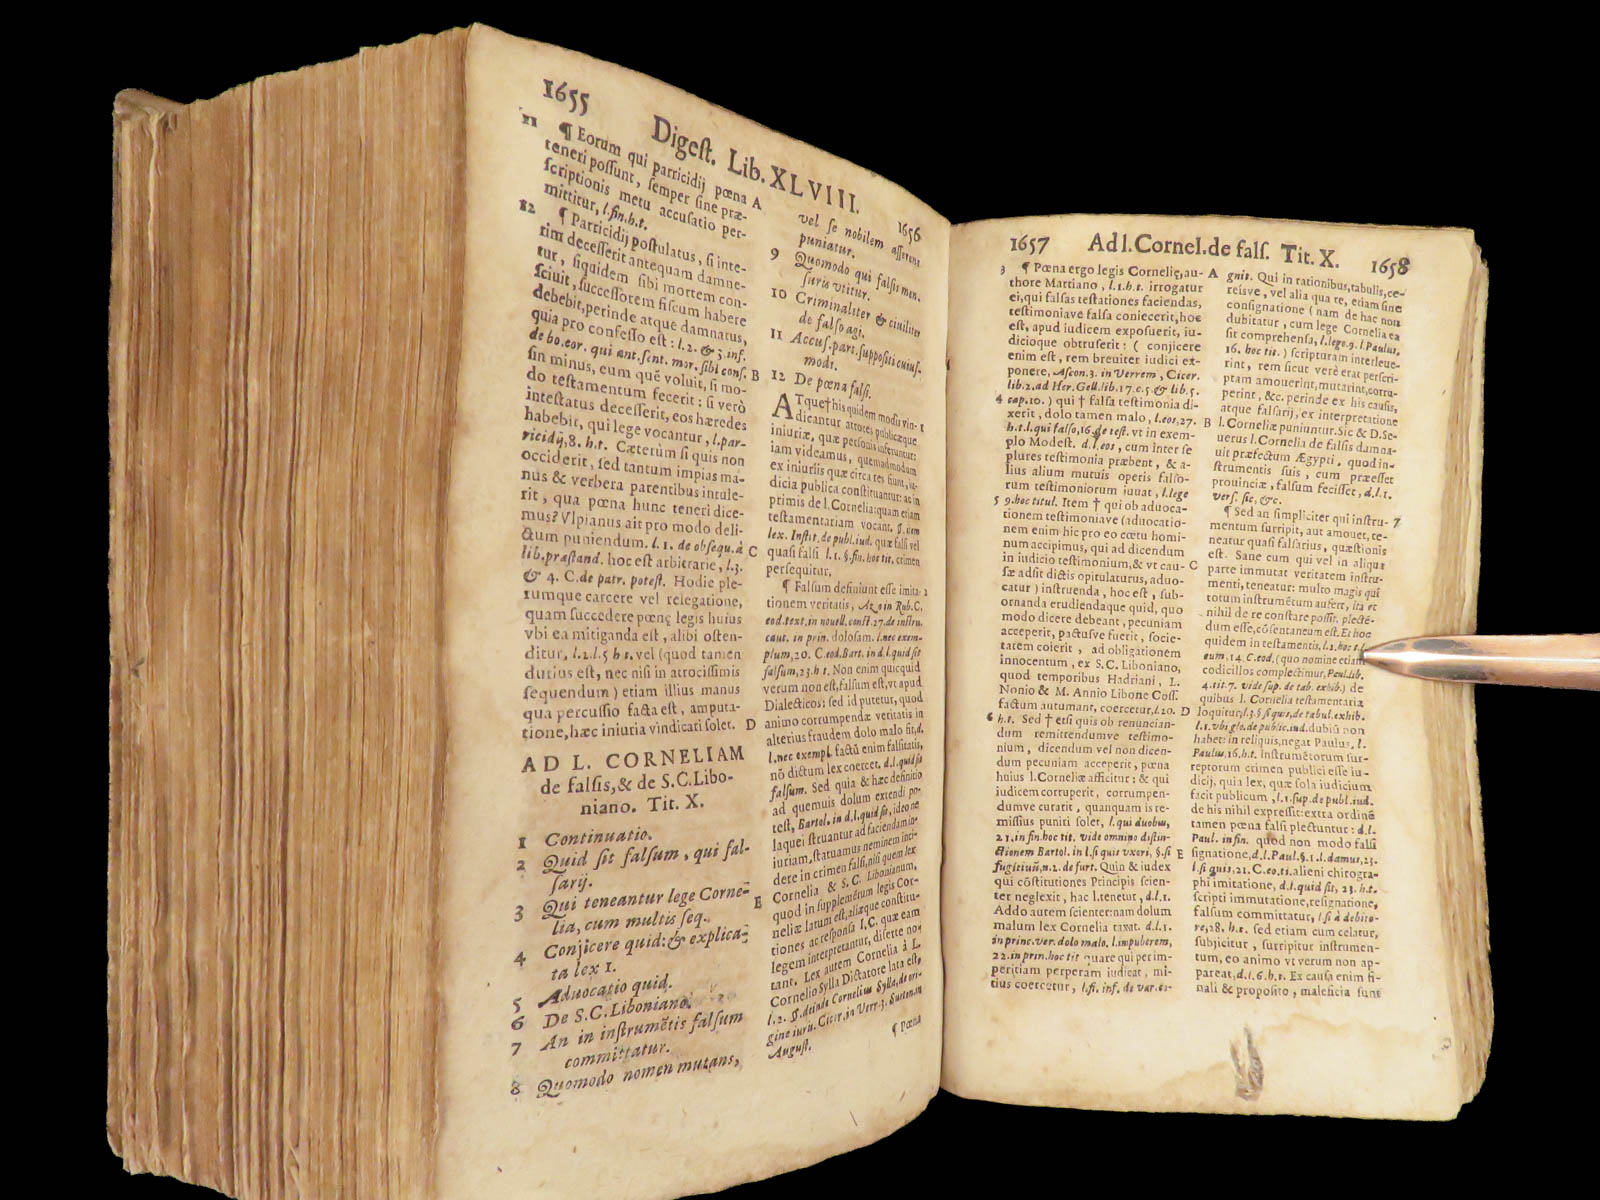 1655
Digeſt. Lib. XLVIII.
1656
11 ¶ Eorum qui parricidij pœna A
teneri poſſunt, ſemper ſine præ-
ſcriptionis metu accuſatio per-
mittitur, l. fin. h. t.
12 ¶ Parricidij poſtulatus, ſi inte-
rim deceſſerit antequam damne-
tur, ſiquidem ſibi mortem con-
ſciuit, ſucceſſorem fiſcum habere
debebit, perinde atque damnatus,
quia pro confeſſo eſt : l. 2. & 3. inf.
de bo. eor. qui ant. ſent. mor. ſibi conſ. B
ſin minus, eum quē voluit, ſi mo-
do teſtamentum fecerit : ſi verò
inteſtatus deceſſerit, eos hæredes
habebit, qui lege vocantur, l. par-
ricidij, 8. h. t. Cæterùm ſi quis non
occiderit, ſed tantum impias ma-
nus & verbera parentibus intule-
rit, qua pœna hunc teneri dice-
mus? Vlpianus ait pro modo deli-
ctum puniendum. l. 1. de obſequ. à C
lib. præſtand. hoc eſt arbitrarie, l. 3.
& 4. C. de patr. poteſt. Hodie ple-
rumque carcere vel relegatione,
quam ſuccedere pœnę legis huius
vbi ea mitiganda eſt, alibi oſten-
ditur, l. 2. l. 5 h t. vel (quod tamen
durius eſt, nec niſi in atrociſſimis
ſequendum) etiam illius manus
qua percuſſio facta eſt, amputa-
tione, hæc iniuria vindicari ſolet. D
AD L. CORNELIAM
de falſis, & de S. C. Libo-
niano. Tit. X.
1 Continuatio.
2 Quid ſit falſum, qui fal-
ſarij.
3 Qui teneantur lege Corne-
lia, cum multis ſeq.
4 Conjicere quid: & explica-
ta lex 1.
5 Aduocatio quid.
6 De S. C. Liboniano.
7 An in inſtrumētis falſum
committatur.
8 Quomodo nomen mutans,
vel ſe nobilem aſſerens
puniatur.
9 Quomodo qui falſis men-
ſuris vtitur.
10 Criminaliter & ciuiliter
de falſo agi.
11 Accuſ. part. ſuppoſiti cuiuſ-
modi.
12 De pœna falſi.
ATque† his quidem modis vin- 1
dicantur atroces publicæque
iniuriæ, quæ perſonis inferuntur:
iam videamus, quemadmodum
ex iniuriis quæ circa res fiunt, iu-
dicia publica conſtituantur: ac in
primis de l. Cornelia: quam etiam
teſtamentariam vocant. §. item
lex. Inſtit. de publ. iud. quæ falſi vel
quaſi falſi l. 1. §. fin. hoc tit. crimen
perſequitur.
¶ Falſum definiunt eſſe imita- 2
tionem veritatis, Azo in Rub. C.
eod. text. in nouell. conſt. 27. de inſtru.
caut. in prin. doloſam. l. nec exem-
plum, 20. C. eod. Bart. in d. l. quid ſit
falſum, 23. h. t. Non enim quicquid
verum non eſt, falſum eſt, vt apud
Dialecticos: ſed id putetur, quod
animo corrumpendæ veritatis in
alterius fraudem dolo malo fit, d.
l. nec exempl. factū enim falſitatis,
nō dictum lex coercet. d. l. quid ſit
falſum. Sed quia & hæc definitio
ad quemuis dolum extendi po-
teſt, Bartol. in d. l. quid ſit, ideo ne
laquei ſtruantur ad faciendam in-
iuriam, ſtatuamus neminem inci-
dere in crimen falſi, niſi quem lex
E Cornelia & S. C. Libonianum,
quod in ſupplemētum legis Cor-
neliæ latum eſt, aliæque conſtitu-
tiones ac reſponſa I. C. quæ eam
legem interpretantur, diſerte no-
tant. Lex autem Cornelia à L.
Cornelio Sylla Dictatore lata eſt,
l. 2. §. deinde Cornelius Sylla, de ori-
gine iuris. Cicer. in Verr. 3. Sueton. in
Auguſt.
¶ Pœna
1657
Ad l. Cornel. de falſ. Tit. X.
1658
3 ¶ Pœna ergo legis Cornelię, au- A
thore Martiano, l. 1. h. t. irrogatur
ei, qui falſas teſtationes faciendas,
teſtimoniave falſa conjecerit, hoc
eſt, apud iudicem expoſuerit, iu-
dicioque obtruſerit: ( conjicere
enim eſt, rem breuiter iudici ex-
ponere, Aſcon. 3. in Verrem, Cicer.
lib. 2. ad Her. Gell. lib. 17. c. 5. & lib. 5.
4 cap. 10. ) qui † falſa teſtimonia di-
xerit, dolo tamen malo, l. eos, 27. B
h. t. l. qui falſo, 16. de teſt. vt in exem-
plo Modeſt. d. l. eos, cum inter ſe
plures teſtimonia præbent, & a-
lius alium mutuis operis falſo-
rum teſtimoniorum iuuat, l. lege
5 9. hoc titul. Item † qui ob aduoca-
tionem teſtimoniave (aduocatio-
nem enim hic pro eo cœtu homi-
num accipimus, qui ad dicendum
in iudicio teſtimonium, & vt cau- C
ſæ adſit dictis opitulaturus, aduo-
catur) inſtruenda, hoc eſt, ſub-
ornanda erudiendaque quid, quo
modo dicere debeant, pecuniam
acceperit, pactuſve fuerit, ſocie-
tatem coierit, ad obligationem
innocentum, ex S. C. Liboniano,
quod temporibus Hadriani, L.
Nonio & M. Annio Libone Coſſ.
factum autumant, coercetur, l. 20. D
6 h. t. Sed † etſi quis ob renuncian-
dum remittendumve teſtimo-
nium, dicendum vel non dicen-
dum pecuniam acceperit, pœna
huius l. Corneliæ afficitur : & qui
iudicem corruperit, corrumpen-
dumve curatit, quanquam is re-
miſſius puniri ſolet, l. qui duobus,
21. in fin. hoc tit. vide omnino diſtin-
ctionem Bartol. in l. ſi quis vxori, §. ſi E
fugitiuū, n. 2. de furt. Quin & iudex
qui cōſtitutiones Principis ſcien-
ter neglexit, hac l. tenetur, d. l. 1.
Addo autem ſcienter: nam dolum
malum lex Cornelia taxat. d. l. 1.
in princ. ver. dolo malo. l. impuberem,
22. in prin. hoc tit quare qui per im-
peritiam perperam iudicat, mi-
tius coercetur, l. fi. inf. de var. ex-
gnit. Qui in rationibus, tabulis, ce-
reiſve, vel alia qua re, etiam ſine
conſignatione ( nam de hac non
dubitatur, cum lege Cornelia ea
ſit comprehenſa, l. lege 9. l. Paulus,
16. hoc tit. ) ſcripturam interleue-
rint, rem ſicut verè erat perſcri-
ptam amouerint, mutarint, corru-
perint, &c. perinde ex his cauſis,
atque falſarij, ex interpretatione
l. Corneliæ puniuntur. Sic & D. Se-
uerus l. Cornelia de falſis damna-
uit præfectum Ægypti, quod in-
ſtrumentis ſuis, cum præeſſet
prouinciæ, falſum feciſſet, d. l. 1.
verſ. ſic, &c.
¶ Sed an ſimpliciter qui inſtru- 7
mentum ſurripit, aut amouet, te-
neatur quaſi falſarius, quæſtionis
eſt. Sane cum qui vel in aliqua
parte immutat veritatem inſtru-
menti, teneatur: multo magis qui
totum inſtrumētum aufert, ita et
nihil de re conſtare poſſit, plectē-
dum eſſe, cōſentaneum eſt. Et hoc
quidem in teſtamentis, l. 2. hoc t. l.
eum, 14. C. eod. (quo nomine etiam
codicillos complectimur, Paul. lib.
4. tit. 7. vide ſup. de tab. exhib. ) de
quibus l. Cornelia teſtamentaria
loquitur, l. 3. § ſi quis, de tabul. exhib.
l. 1. vbi glo. de public. iud. dubiū non
habet: in reliquis, negat Paulus, l.
Paulus, 16. h. t. Inſtrumētorum ſur-
reptorum crimen publici eſſe iu-
dicij, quia lex, quæ ſola iudicium
facit publicum, l. 1. ſup. de publ. iud.
de his nihil expreſſit: extra ordinē
tamen pœna falſi plectuntur : d. l.
Paul. in fin. quod non modo falſi
ſignatione, d. l. Paul. §. 1. l. damus, 23.
l. ſi quis, 21. C. eo. ti. alieni chirogra-
phi imitatione, d. l. quid ſit, 23. h. t.
ſcripti immutatione, reſignatione,
falſum committatur, l. ſi à debito-
re, 28. h. t. ſed etiam cum celatur,
ſubjicitur, ſurripitur inſtrumen-
tum, eo animo vt verum non ap-
pareat, d. l. 6. h. t. Ex cauſa enim fi-
nali & propoſito, maleficia ſunt